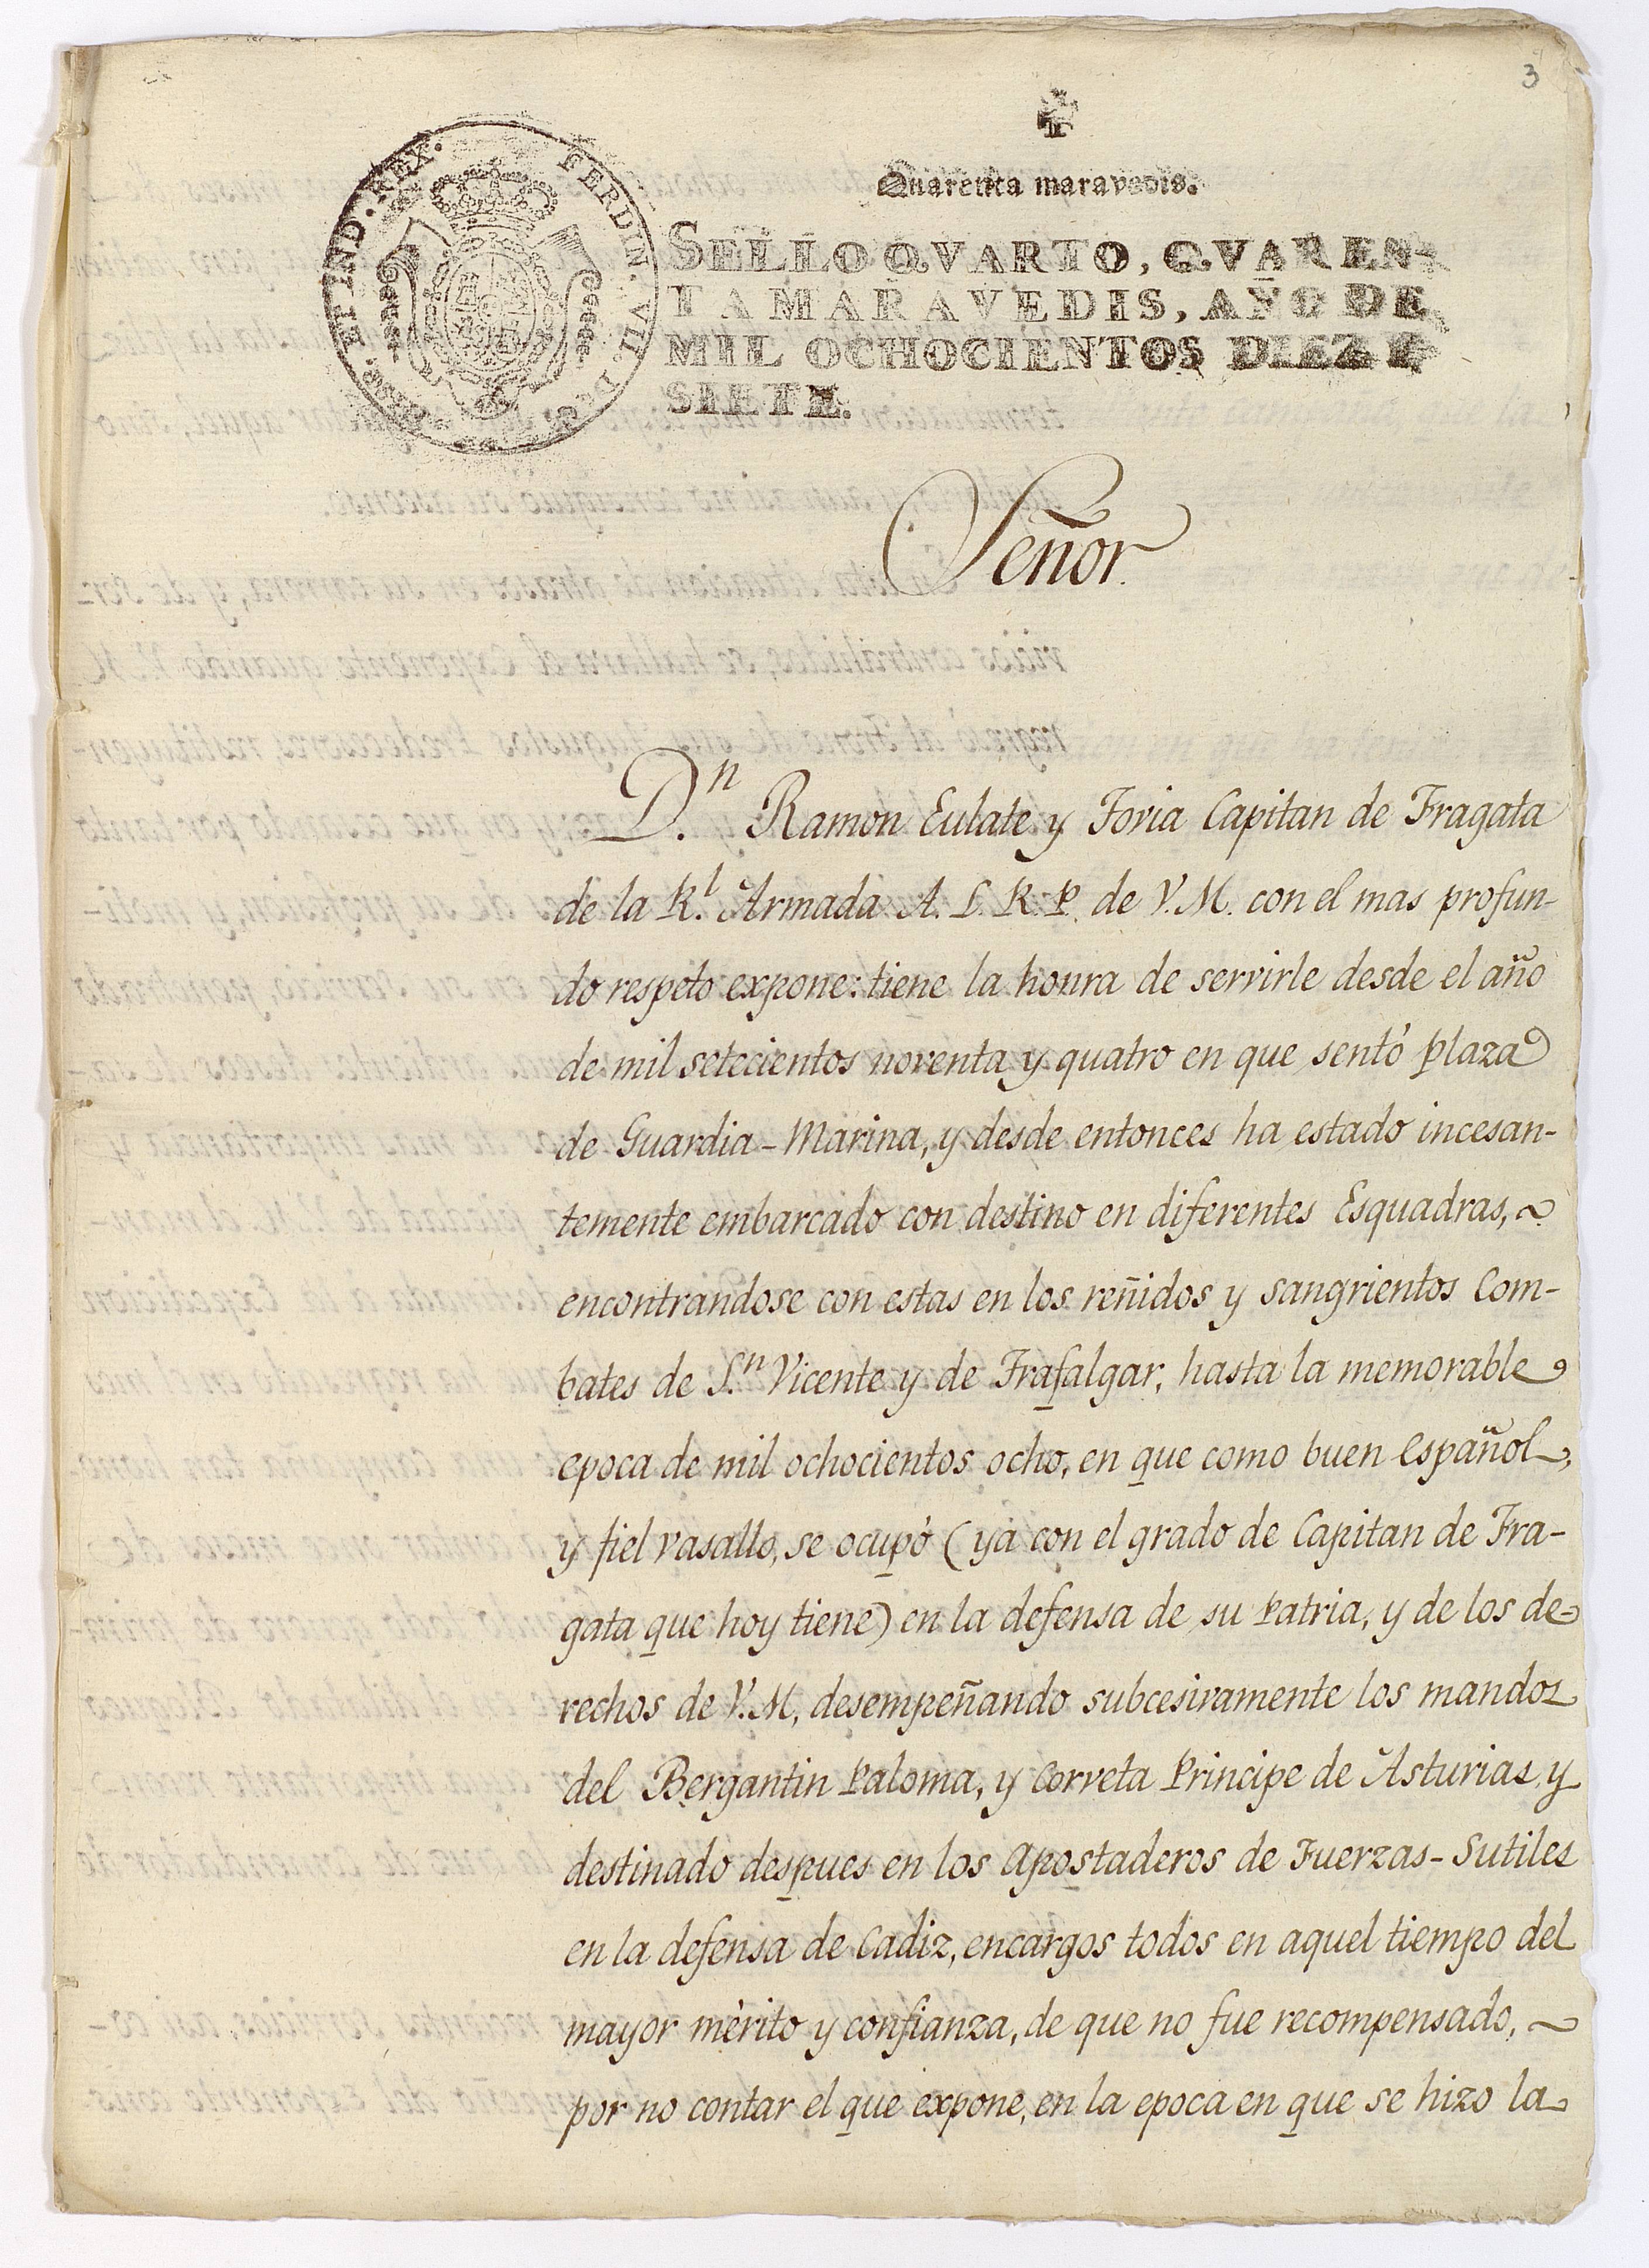 3
Quarenta maravedis.
FERDIN. VII. D. G. HISP. ET IND. REX.
SELLO QVARTO, QVAREN-
TA MARAVEDIS, AÑO DE
MIL OCHOCIENTOS DIEZ Y
SIETE.
Señor.
D.n Ramon Eulate y Toria Capitan de Fragata
de la R.l Armada A. L. R. P. de V. M. con el mas profun-
do respeto expone: tiene la honra de servirle desde el año
de mil setecientos noventa y quatro en que sentó plaza
de Guardia-Marina, y desde entonces ha estado incesan-
temente embarcado con destino en diferentes Esquadras,
encontrandose con estas en los reñidos y sangrientos Com-
bates de S.n Vicente y de Trafalgar, hasta la memorable
epoca de mil ochocientos ocho, en que como buen Español,
y fiel vasallo, se ocupó (ya con el grado de Capitan de Fra-
gata que hoy tiene) en la defensa de su Patria, y de los de-
rechos de V. M, desempeñando subcesivamente los mandos
del Bergantin Paloma, y Corveta Principe de Asturias, y
destinado despues en los Apostaderos de Fuerzas-Sutiles
en la defensa de Cadiz, encargos todos en aquel tiempo del
mayor mérito y confianza, de que no fue recompensado,
por no contar el que expone, en la epoca en que se hizo la